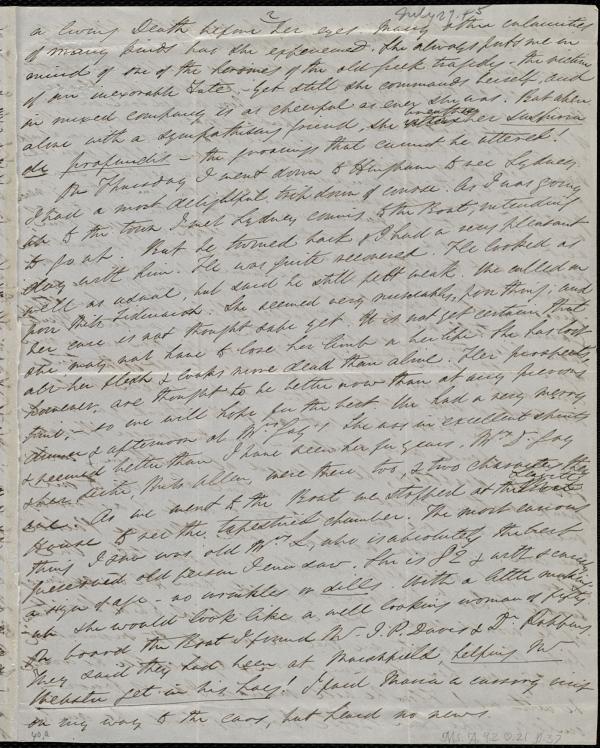 July 27. 45
a living Death before her eyes. Many other calamities
of many kinds has she experienced. She always puts me in
mind of one of the heroines of the old Greek tragedy - the victim
of an inexorable Fate. - Yet still she commands herself, and
in mixed company is as cheerful as ever she was. But when
alone with a sympathising friend, she breathes her suspiria
de profundis - the groanings that cannot be uttered!
On Thursday I went down to Hingham to see Sydney.
I had a most delightful trip down of course. As I was going
up to the town I met Sydney coming to the Boat, intending
to go up. But he turned back & I had a very pleasant
day with him. He was quite recovered. He looked as
well as usual, but said he still felt weak. We called on
poor Miss. She seemed very miserable, poor thing, and
her case is not thought safe yet. It is not yet certain that
she may not have to lose her limb or her life. She has lost
all her flesh & looks more dead than alive. Her prospects,
however, are thought to be better now than at any previous
time, - so we will hope for the best. We had a very merry
dinner & afternoon at Mrs Gay's. She was in excellent spirits
& seemed better than I have seen her for years. Mrs J. Gay
& her sister, Miss Allen, were there too, & two characters they
are. As we went to the Boat we stopped at the
House to see the tapestried chamber. The most curious
thing I saw was old Mrs L, who is absolutely the best
preserved old person I ever saw. She is 82 & with scarcely
a sign of age - no wrinkles or dells. With a little making
up she would look like a well looking woman of fifty.
On board the Boat I found Mr. I. P. Davis & Dr Robbins.
They said they had been at Marshfield, helping Mr.
Webster get in his hay! I paid Maria a cursory visit
on my way to the cars, but heard no news.
40,a
Ms. A. 9.2 v.21 p.37